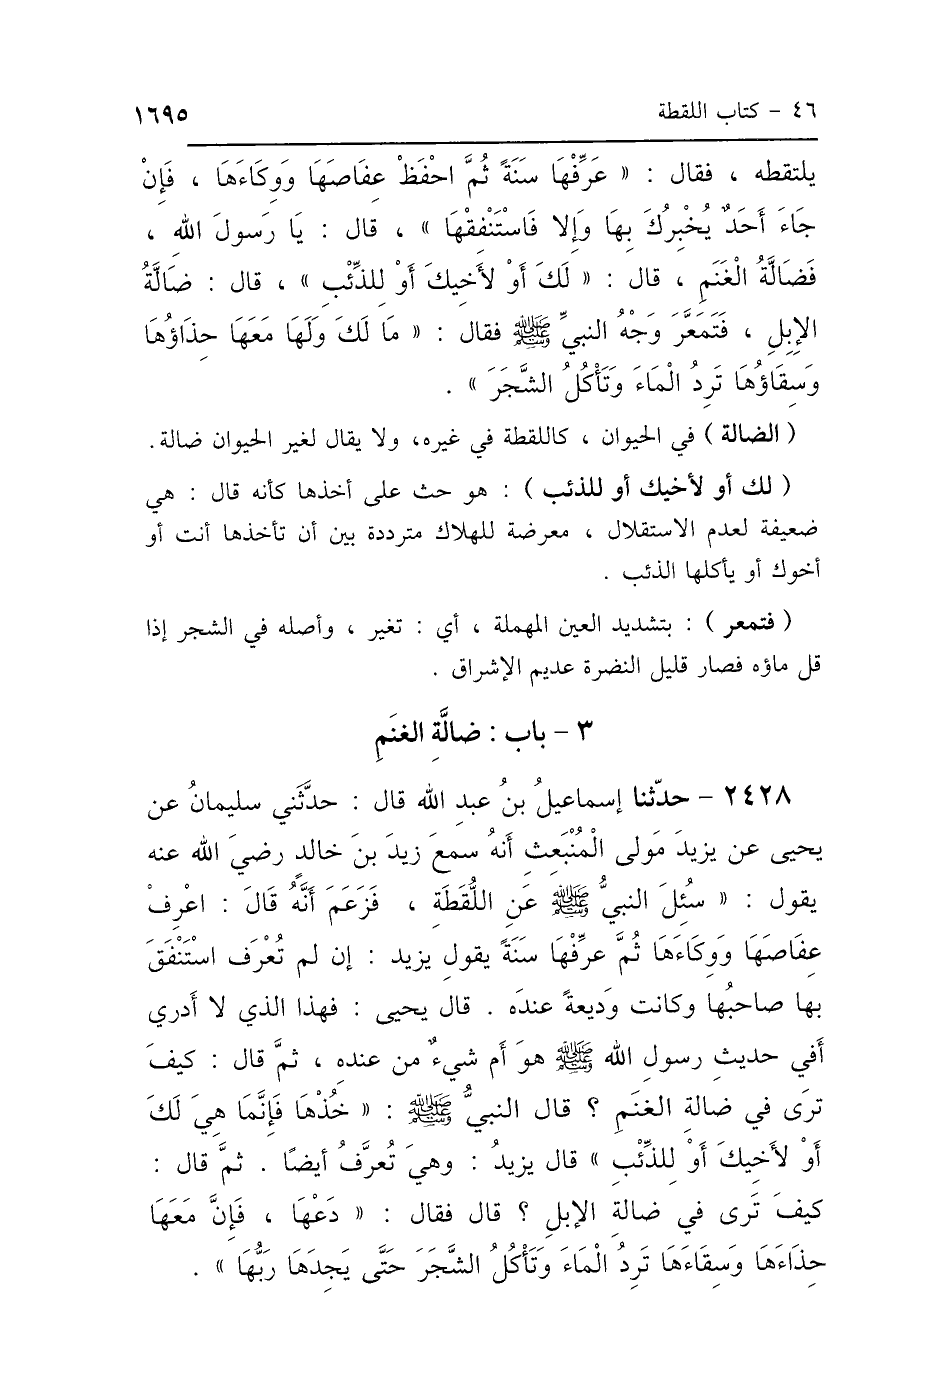 ٤٦ - كتاب اللقطة ١٦٩٥
يلتقطه ، فقال : « عَرِّفْهَا سَنَةً ثُمَّ احْفَظْ عِفَاصَهَا وَوِكَاءَهَا ، فَإِنْ
جَاءَ أَحَدٌ يُخْبِرُكَ بِهَا وَإِلا فَاسْتَنْفِقْهَا » ، قال : يَا رَسولَ اللهِ ،
فَضَالَّةُ الْغَنَمِ ، قال : « لَكَ أَوْ لأَخِيكَ أَوْ لِلذِّئْبِ » ، قال : ضَالَّةُ
الإِبِلِ ، فَتَمَعَّرَ وَجْهُ النبيِّ ﷺ فقال : « مَا لَكَ وَلَهَا مَعَهَا حِذَاؤُهَا
وَسِقَاؤُهَا تَرِدُ الْمَاءَ وَتَأْكُلُ الشَّجَرَ » .
( الضالة ) في الحيوان ، كاللقطة في غيره، ولا يقال لغير الحيوان ضالة.
( لك أو لأخيك أو للذئب ) : هو حث على أخذها كأنه قال : هي
ضعيفة لعدم الاستقلال ، معرضة للهلاك مترددة بين أن تأخذها أنت أو
أخوك أو يأكلها الذئب .
( فتمعر ) : بتشديد العين المهملة ، أي : تغير ، وأصله في الشجر إذا
قل ماؤه فصار قليل النضرة عديم الإشراق .
٣ - باب : ضالَّةِ الغنَمِ
٢٤٢٨ - حدّثنا إسماعيلُ بنُ عبدِ الله قال : حدَّثَني سليمانُ عن
يحيى عن يزيدَ مَولى الْمُنْبَعِثِ أنهُ سمعَ زيدَ بنَ خالدٍ رضيَ الله عنه
يقول : « سُئِلَ النبيُّ ﷺ عَنِ اللُّقَطَة ، فَزَعَمَ أَنَّهُ قَالَ : اعْرِفْ
عِفَاصَهَا وَوِكَاءَهَا ثُمَّ عرِّفْهَا سَنَةً يقولِ يزيد : إن لم تُعْرَف اسْتَنْفَقَ
بها صاحبُها وكانت وَديعةً عندَه . قال يحيى : فهذا الذي لا أَدري
أَفي حديثِ رسولِ الله ﷺ هوَ أَم شيءٌ من عندِهِ ، ثمَّ قال : كيفَ
ترَى في ضالةِ الغنَمِ ؟ قال النبيُّ ﷺ : « خُذْهَا فَإِنَّمَا هِيَ لَكَ
أَوْ لأَخِيكَ أَوْ لِلذِّئْبِ » قال يزيدُ : وهيَ تُعرَّفُ أيضًا . ثمَّ قال :
كيفَ تَرى في ضالةِ الإبلِ ؟ قال فقال : « دَعْهَا ، فَإِنَّ مَعَهَا
حِذَاءَهَا وَسِقَاءَهَا تَرِدُ الْمَاءَ وَتَأْكُلُ الشَّجَرَ حَتَّى يَجِدَهَا رَبُّهَا » .